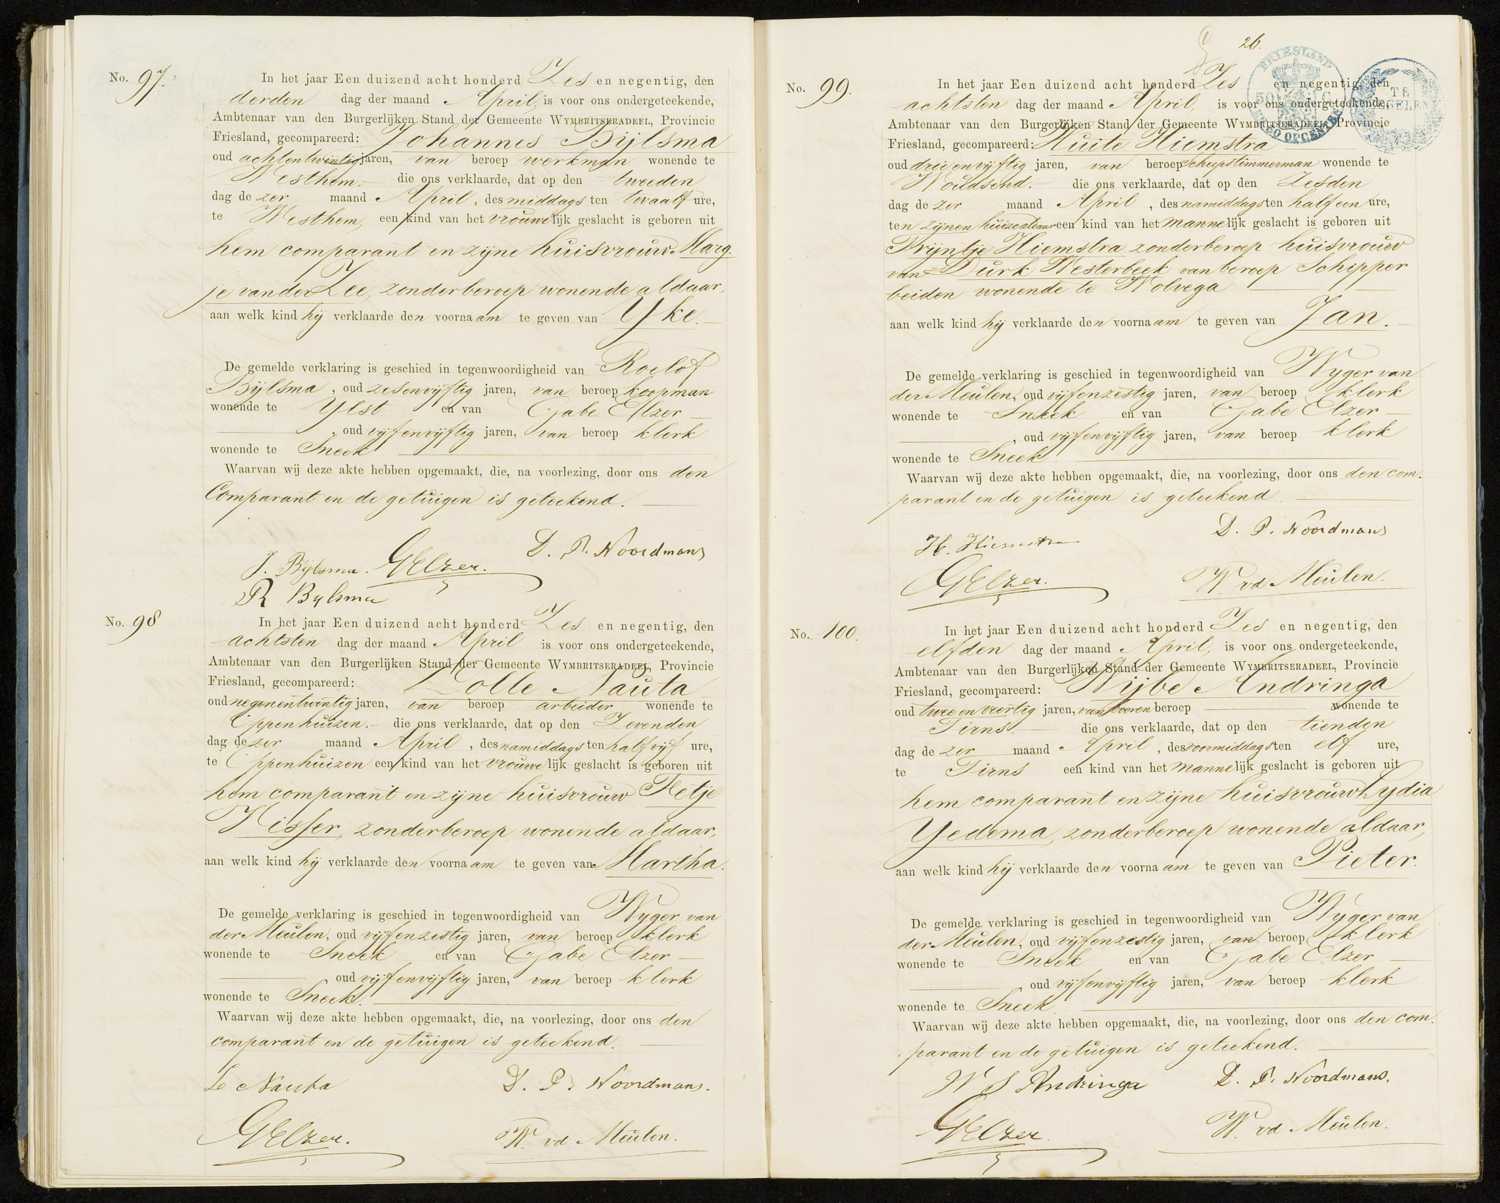 No. 97.
In het jaar Een duizend acht honderd Zes en negentig, den
derden dag der maand April, is voor ons ondergeteekende,
Ambtenaar van den Burgerlijken Stand der Gemeente WYMBRITSERADEEL, Provincie
Friesland, gecompareerd: Johannes Bijlsma
oud achtentwintig jaren, van beroep werkman wonende te
Westhem. die ons verklaarde, dat op den tweeden
dag dezer maand April, des middags ten twaalf ure,
te Westhem, een kind van het vrouwelijk geslacht is geboren uit
hem comparant en zijne huisvrouw Marg-
je van der Zee, zonder beroep wonende aldaar,
aan welk kind hij verklaarde den voornaam te geven van Yke.
De gemelde verklaring is geschied in tegenwoordigheid van Roelof
Bijlsma, oud zesenvijftig jaren, van beroep koopman
wonende te Ylst en van Gabe Elzer
, oud vijfenvijftig jaren, van beroep klerk
wonende te Sneek
Waarvan wij deze akte hebben opgemaakt, die, na voorlezing, door ons den
Comparant en de getuigen is geteekend.
J. Bylsma. GElzer. D. P. Noordmans
R Bylsma
No. 98
In het jaar Een duizend acht honderd Zes en negentig, den
achtsten dag der maand April is voor ons ondergeteekende,
Ambtenaar van den Burgerlijken Stand der Gemeente WYMBRITSERADEEL, Provincie
Friesland, gecompareerd: Lolle Nauta
oud negenentwintig jaren, van beroep arbeider wonende te
Oppenhuizen. die ons verklaarde, dat op den Zevenden
dag dezer maand April, des namiddags ten half vijf ure,
te Oppenhuizen een kind van het vrouwelijk geslacht is geboren uit
hem comparant en zijne huisvrouw Fetje
Visser, zonder beroep wonende aldaar,
aan welk kind hij verklaarde den voornaam te geven van Martha.
De gemelde verklaring is geschied in tegenwoordigheid van Wijger van
der Meulen, oud vijfenzestig jaren, van beroep klerk
wonende te Sneek en van Gabe Elzer
oud vijfenvijftig jaren, van beroep klerk
wonende te Sneek.
Waarvan wij deze akte hebben opgemaakt, die, na voorlezing, door ons den
comparant en de getuigen is geteekend.
L. Nauta D. P. Noordmans.
GElzer. W. vd Meulen.
26.
FRIESLAND
No. 99.
In het jaar Een duizend acht honderd Zes en negentig, den
achtsten dag der maand April, is voor ons ondergeteekende,
Ambtenaar van den Burgerlijken Stand der Gemeente WYMBRITSERADEEL, Provincie
Friesland, gecompareerd: Huite Hiemstra
oud drieenvijftig jaren, van beroep scheepstimmerman wonende te
Woudsend. die ons verklaarde, dat op den Zesden
dag dezer maand April, des namiddags ten half een ure,
ten zijnen huize alsmee een kind van het mannelijk geslacht is geboren uit
Trijntje Hiemstra zonder beroep huisvrouw
van Durk Westerbeek van beroep Schipper
beiden wonende te Wolvega
aan welk kind hij verklaarde den voornaam te geven van Jan.
De gemelde verklaring is geschied in tegenwoordigheid van Wijger van
der Meulen, oud vijfenzestig jaren, van beroep klerk
wonende te Sneek en van Gabe Elzer
, oud vijfenvijftig jaren, van beroep klerk
wonende te Sneek
Waarvan wij deze akte hebben opgemaakt, die, na voorlezing, door ons den com-
parant en de getuigen is geteekend
H. Hiemstra D. P. Noordmans
GElzer. W. vd Meulen.
No. 100.
In het jaar Een duizend acht honderd Zes en negentig, den
elfden dag der maand April, is voor ons ondergeteekende,
Ambtenaar van den Burgerlijken Stand der Gemeente WYMBRITSERADEEL, Provincie
Friesland, gecompareerd: Wijbe Andringa
oud twee en veertig jaren, van beroep wonende te
Tirns die ons verklaarde, dat op den tienden
dag dezer maand April, des voormiddags ten elf ure,
te Tirns een kind van het mannelijk geslacht is geboren uit
hem comparant en zijne huisvrouw Lydia
Yedema, zonder beroep wonende aldaar,
aan welk kind hij verklaarde den voornaam te geven van Pieter.
De gemelde verklaring is geschied in tegenwoordigheid van Wijger van
der Meulen, oud vijfenzestig jaren, van beroep klerk
wonende te Sneek en van Gabe Elzer
oud vijfenvijftig jaren, van beroep klerk
wonende te Sneek
Waarvan wij deze akte hebben opgemaakt, die, na voorlezing, door ons den com-
parant en de getuigen is geteekend.
W S Andringa D. P. Noordmans.
GElzer. W. vd Meulen.